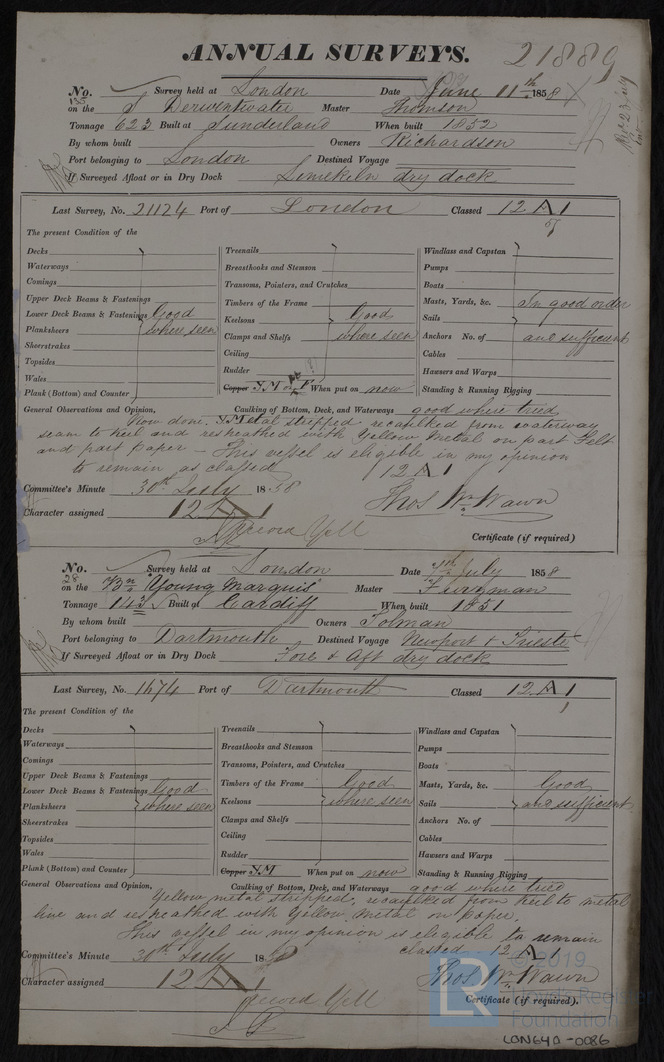 ANNUAL SURVEYS. 21889
No. 135 Survey held at London Date June 11th 1858
on the S Derwentwater Master Thomson
Tonnage 623 Built at Sunderland When built 1852
By whom built Owners Richardson
Port belonging to London Destined Voyage
If Surveyed Afloat or in Dry Dock Limekiln dry dock
Last Survey, No. 21124 Port of London Classed 12 A 1
57
The present Condition of the
Decks Treenails Windlass and Capstan
Waterways Breasthooks and Stemson Pumps
Comings Transoms, Pointers, and Crutches Boats
Upper Deck Beams & Fastenings Timbers of the Frame Masts, Yards, &c. In good order
Lower Deck Beams & Fastenings Good Keelsons Good Sails
Planksheers where seen Clamps and Shelfs where seen Anchors No. of and sufficient
Sheerstrakes Ceiling Cables
Topsides Rudder Hawsers and Warps
Wales Copper Y.M or F When put on now Standing & Running Rigging
Plank (Bottom) and Counter
General Observations and Opinion, Caulking of Bottom, Deck, and Waterways good where tried
Now done. Y. Metal stripped recaulked from waterway
seam to keel and resheathed with Yellow Metal on part Felt
and part paper – This vessel is eligible in my opinion
to remain as classed 12 A 1
Committee's Minute 30th July 1858
Thos Wm Wawn
Character assigned 12 A 1
Record Yell
Certificate (if required)
No. 88 Survey held at London Date July 1858
on the Bn "Young Marquis" Master Furzman
Tonnage 143 Built at Cardiff When built 1851
By whom built Owners Tolman
Port belonging to Dartmouth Destined Voyage Newport & Trieste
If Surveyed Afloat or in Dry Dock Fore & Aft dry dock
Last Survey, No. 1674 Port of Dartmouth Classed 12 A 1
The present Condition of the
Decks Treenails Windlass and Capstan
Waterways Breasthooks and Stemson Pumps
Comings Transoms, Pointers, and Crutches Boats
Upper Deck Beams & Fastenings Timbers of the Frame Good Masts, Yards, &c. Good
Lower Deck Beams & Fastenings Good Keelsons where seen Sails and sufficient
Planksheers where seen Clamps and Shelfs Anchors No. of
Sheerstrakes Ceiling Cables
Topsides Rudder Hawsers and Warps
Wales Copper Y.M When put on now Standing & Running Rigging
Plank (Bottom) and Counter
General Observations and Opinion, Caulking of Bottom, Deck, and Waterways good where tried
Yellow metal stripped, recaulked from keel to metal
line and resheathed with Yellow Metal on paper.
This vessel in my opinion is eligible to remain
classed 12 A 1
Committee's Minute 30th July 1858
Thos Wm Wawn
Character assigned 12 A 1
Record Yell
Certificate (if required).
© 2019
LR Lloyd's Register
Foundation
LON640-0086